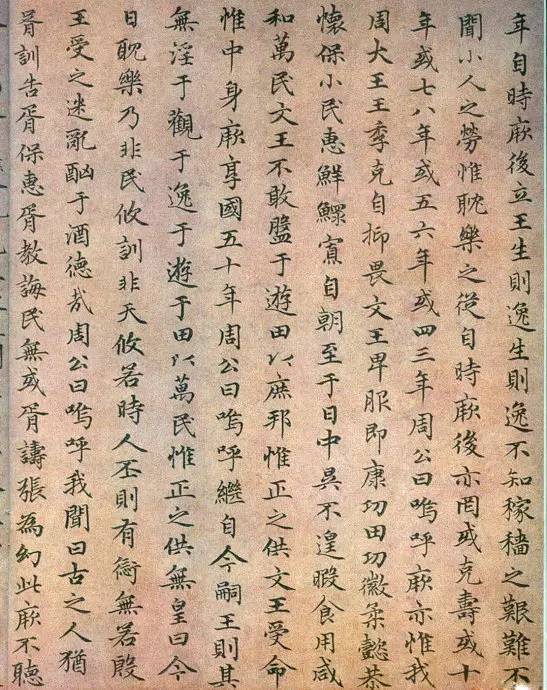 年自時厥後立王生則逸生則逸不知稼穡之艱難不
聞小人之勞惟耽樂之從自時厥後亦罔或克壽或十
年或七八年或五六年或四三年周公曰嗚呼厥亦惟我
周大王王季克自抑畏文王卑服即康功田功徽柔懿恭
懷保小民惠鮮鰥寡自朝至于日中昃不遑暇食用咸
和萬民文王不敢盤于遊田以庶邦惟正之供文王受命
惟中身厥享國五十年周公曰嗚呼繼自今嗣王則其
無淫于觀于逸于遊于田以萬民惟正之供無皇曰今
日耽樂乃非民攸訓非天攸若時人丕則有愆無若殷
王受之迷亂酗于酒德哉周公曰嗚呼我聞曰古之人猶
胥訓告胥保惠胥教誨民無或胥譸張為幻此厥不聽